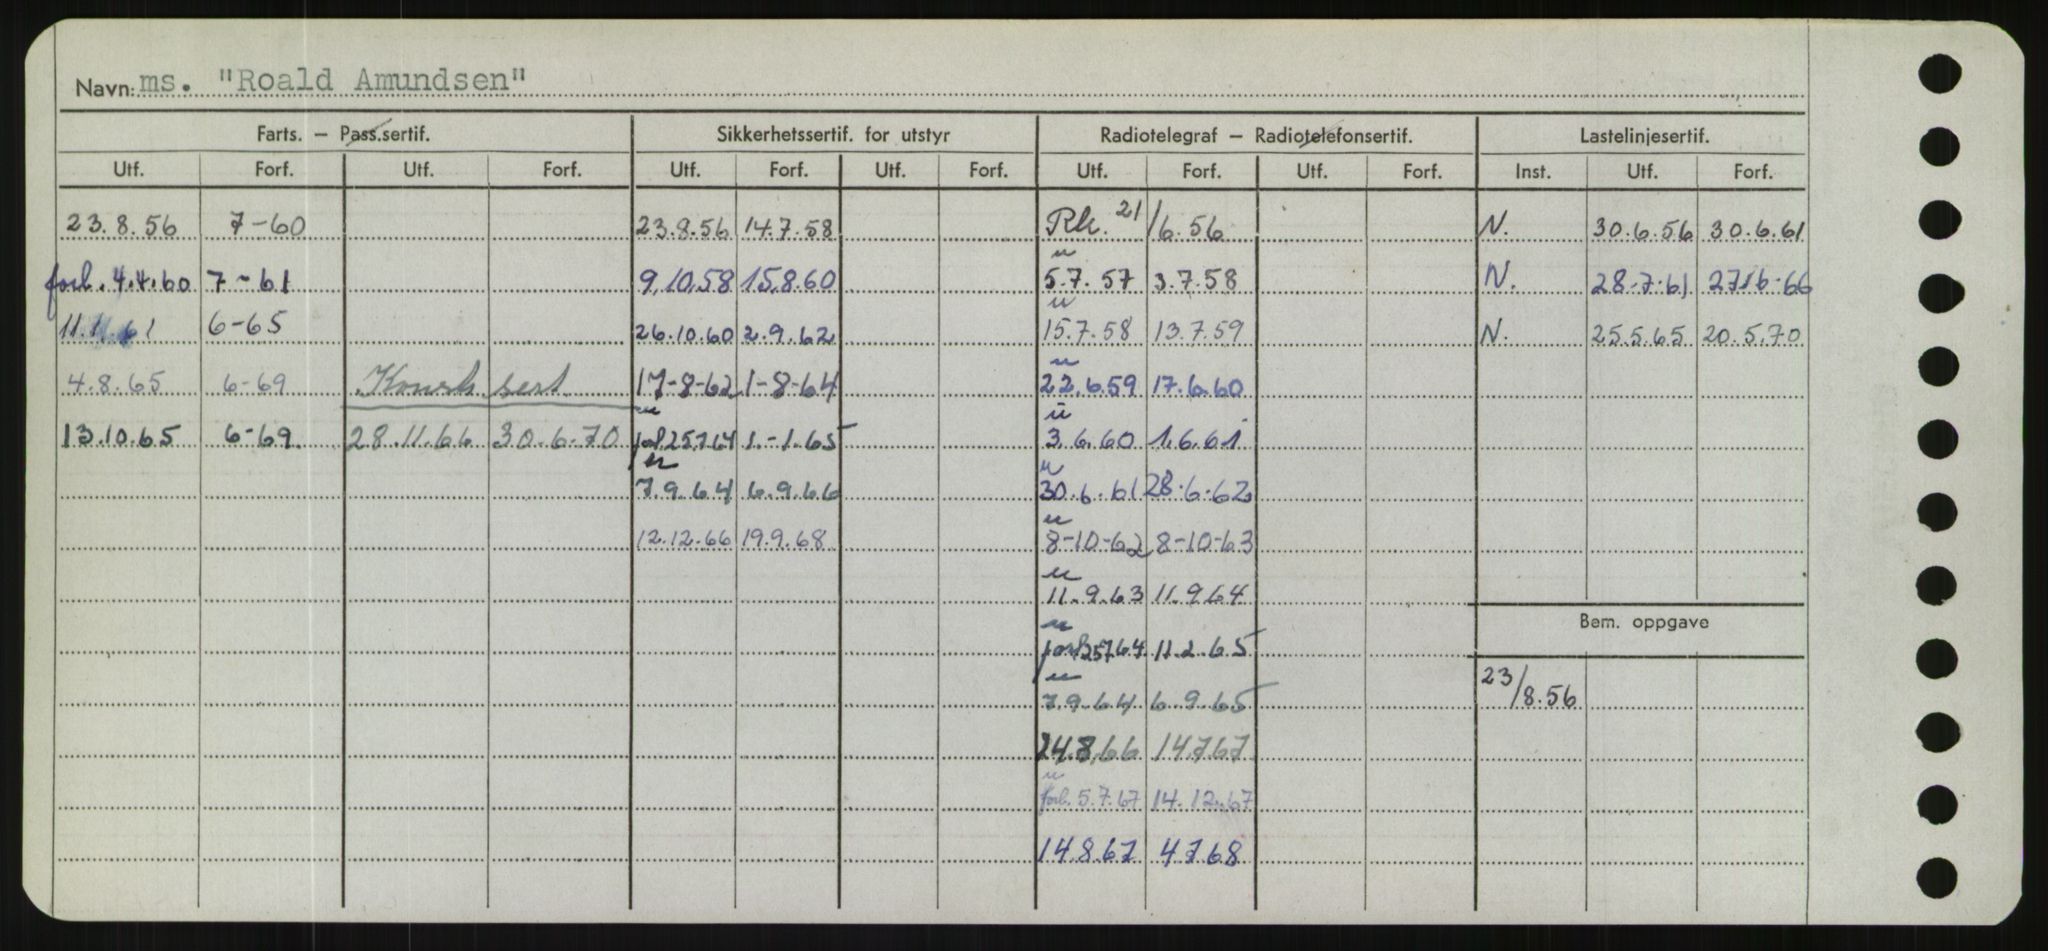 Navn: ms. "Roald Amundsen"
Farts. — Pass.sertif. Sikkerhetssertif. for utstyr Radiotelegraf — Radiotelefonsertif. Lastelinjesertif.
Utf. Forf. Utf. Forf. Utf. Forf. Utf. Forf. Utf. Forf. Utf. Forf. Inst. Utf. Forf.
23.8.56 7-60 23.8.56 14.7.58 Rk. 21/6.56 N. 30.6.56 30.6.61
forl. 4.4.60 7-61 9.10.58 15.8.60 " 5.7.57 3.7.58 N. 28-7-61 27.6-66
11.1.61 6-65 26.10.60 2.9.62 " 15.7.58 13.7.59 N. 25.5.65 20.5.70
4.8.65 6-69 Konstr sert. 17-8-62 1-8-64 " 22.6.59 17.6.60
13.10.65 6-69 28.11.66 30.6.70 " forl. 25.7.64 1.-1.65 " 3.6.60 1.6.61
" 7.9.64 6.9.66 " 30.6.61 28.6-62
12.12.66 19.9.68 " 8-10-62 8-10-63
" 11.9.63 11.9.64
Bem. oppgave
" forl. 25.7.64 11.2.65
23/8.56
" 7.9.64 6.9.65
24.8.66 14.7.67
" forl. 5.7.67 14.12.67
14.8.67 4.7.68